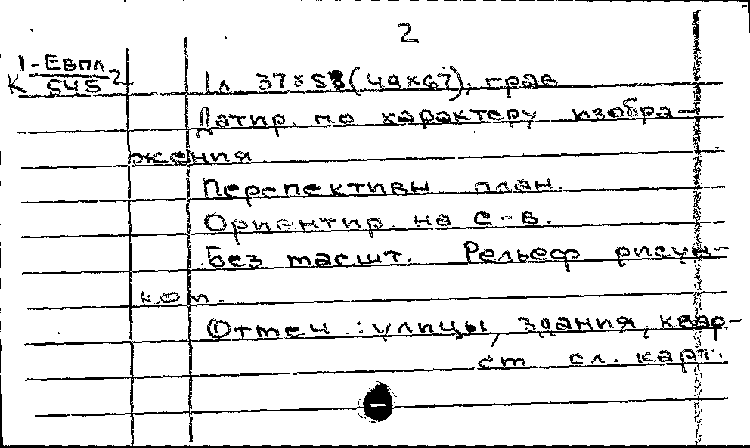 2
К 1-Евпл 2
545
1л 37×53(49×67), грав
Датир. по характеру изобра-
жения
Перспективы план.
Ориентир. на с-в.
Без масшт. Рельеф рисун-
ком.
Отмеч: улицы, здания, квар-
см сл. карт.